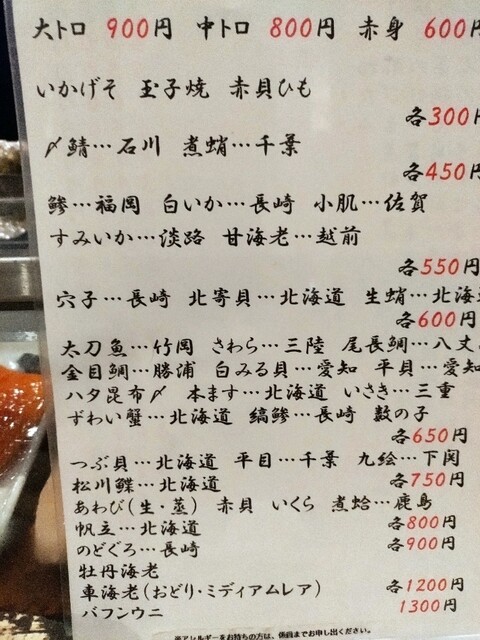 大トロ 900円 中トロ 800円 赤身 600円
いかげそ 玉子焼 赤貝ひも
各300円
〆鯖…石川 煮蛸…千葉
各450円
鯵…福岡 白いか…長崎 小肌…佐賀
すみいか…淡路 甘海老…越前
各550円
穴子…長崎 北寄貝…北海道 生蛸…北海道
各600円
太刀魚…竹岡 さわら…三陸 尾長鯛…八丈
金目鯛…勝浦 白みる貝…愛知 平貝…愛知
ハタ昆布〆 本ます…北海道 いさき…三重
ずわい蟹…北海道 縞鯵…長崎 数の子
各650円
つぶ貝…北海道 平目…千葉 九絵…下関
松川鰈…北海道
各750円
あわび(生・蒸) 赤貝 いくら 煮蛤…鹿島
帆立…北海道
各800円
のどぐろ…長崎
各900円
牡丹海老
車海老(おどり・ミディアムレア)
各1200円
バフンウニ
1300円
※アレルギーをお持ちの方は、係員までお申し出ください。